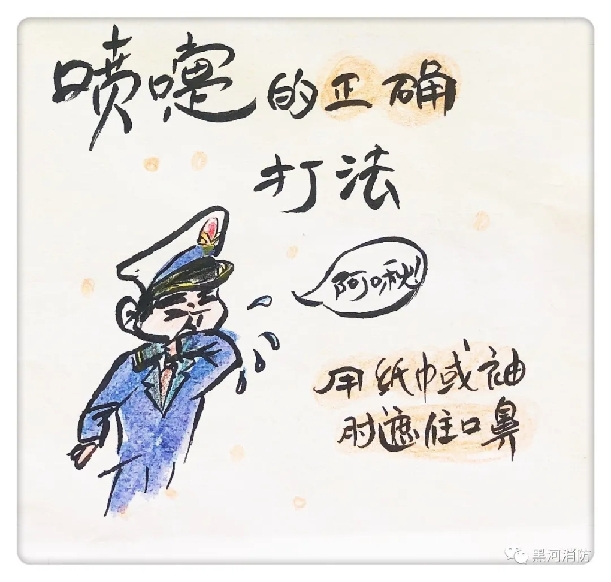 喷嚏的正确
打法
阿嚏!
用纸巾或袖
肘遮住口鼻
黑河消防